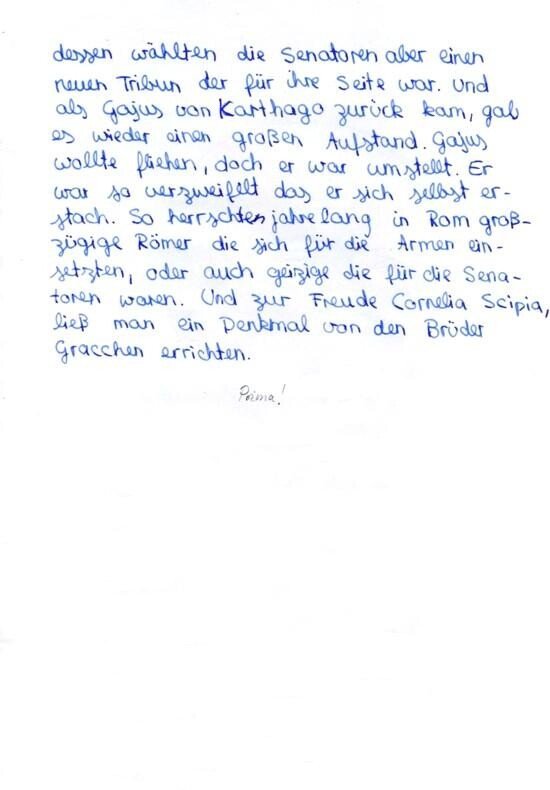 dessen wählten die Senatoren aber einen
neuen Tribun der für ihre Seite war. Und
als Gajus von Karthago zurück kam, gab
es wieder einen großen Aufstand. Gajus
wollte fliehen, doch er war umstellt. Er
war so verzweifelt das er sich selbst er-
stach. So herrschten jahrelang in Rom groß-
zügige Römer die sich für die Armen ein-
setzten, oder auch geizige die für die Sena-
toren waren. Und zur Freude Cornelia Scipia,
ließ man ein Denkmal von den Brüder
Gracchen errichten.
Prima!